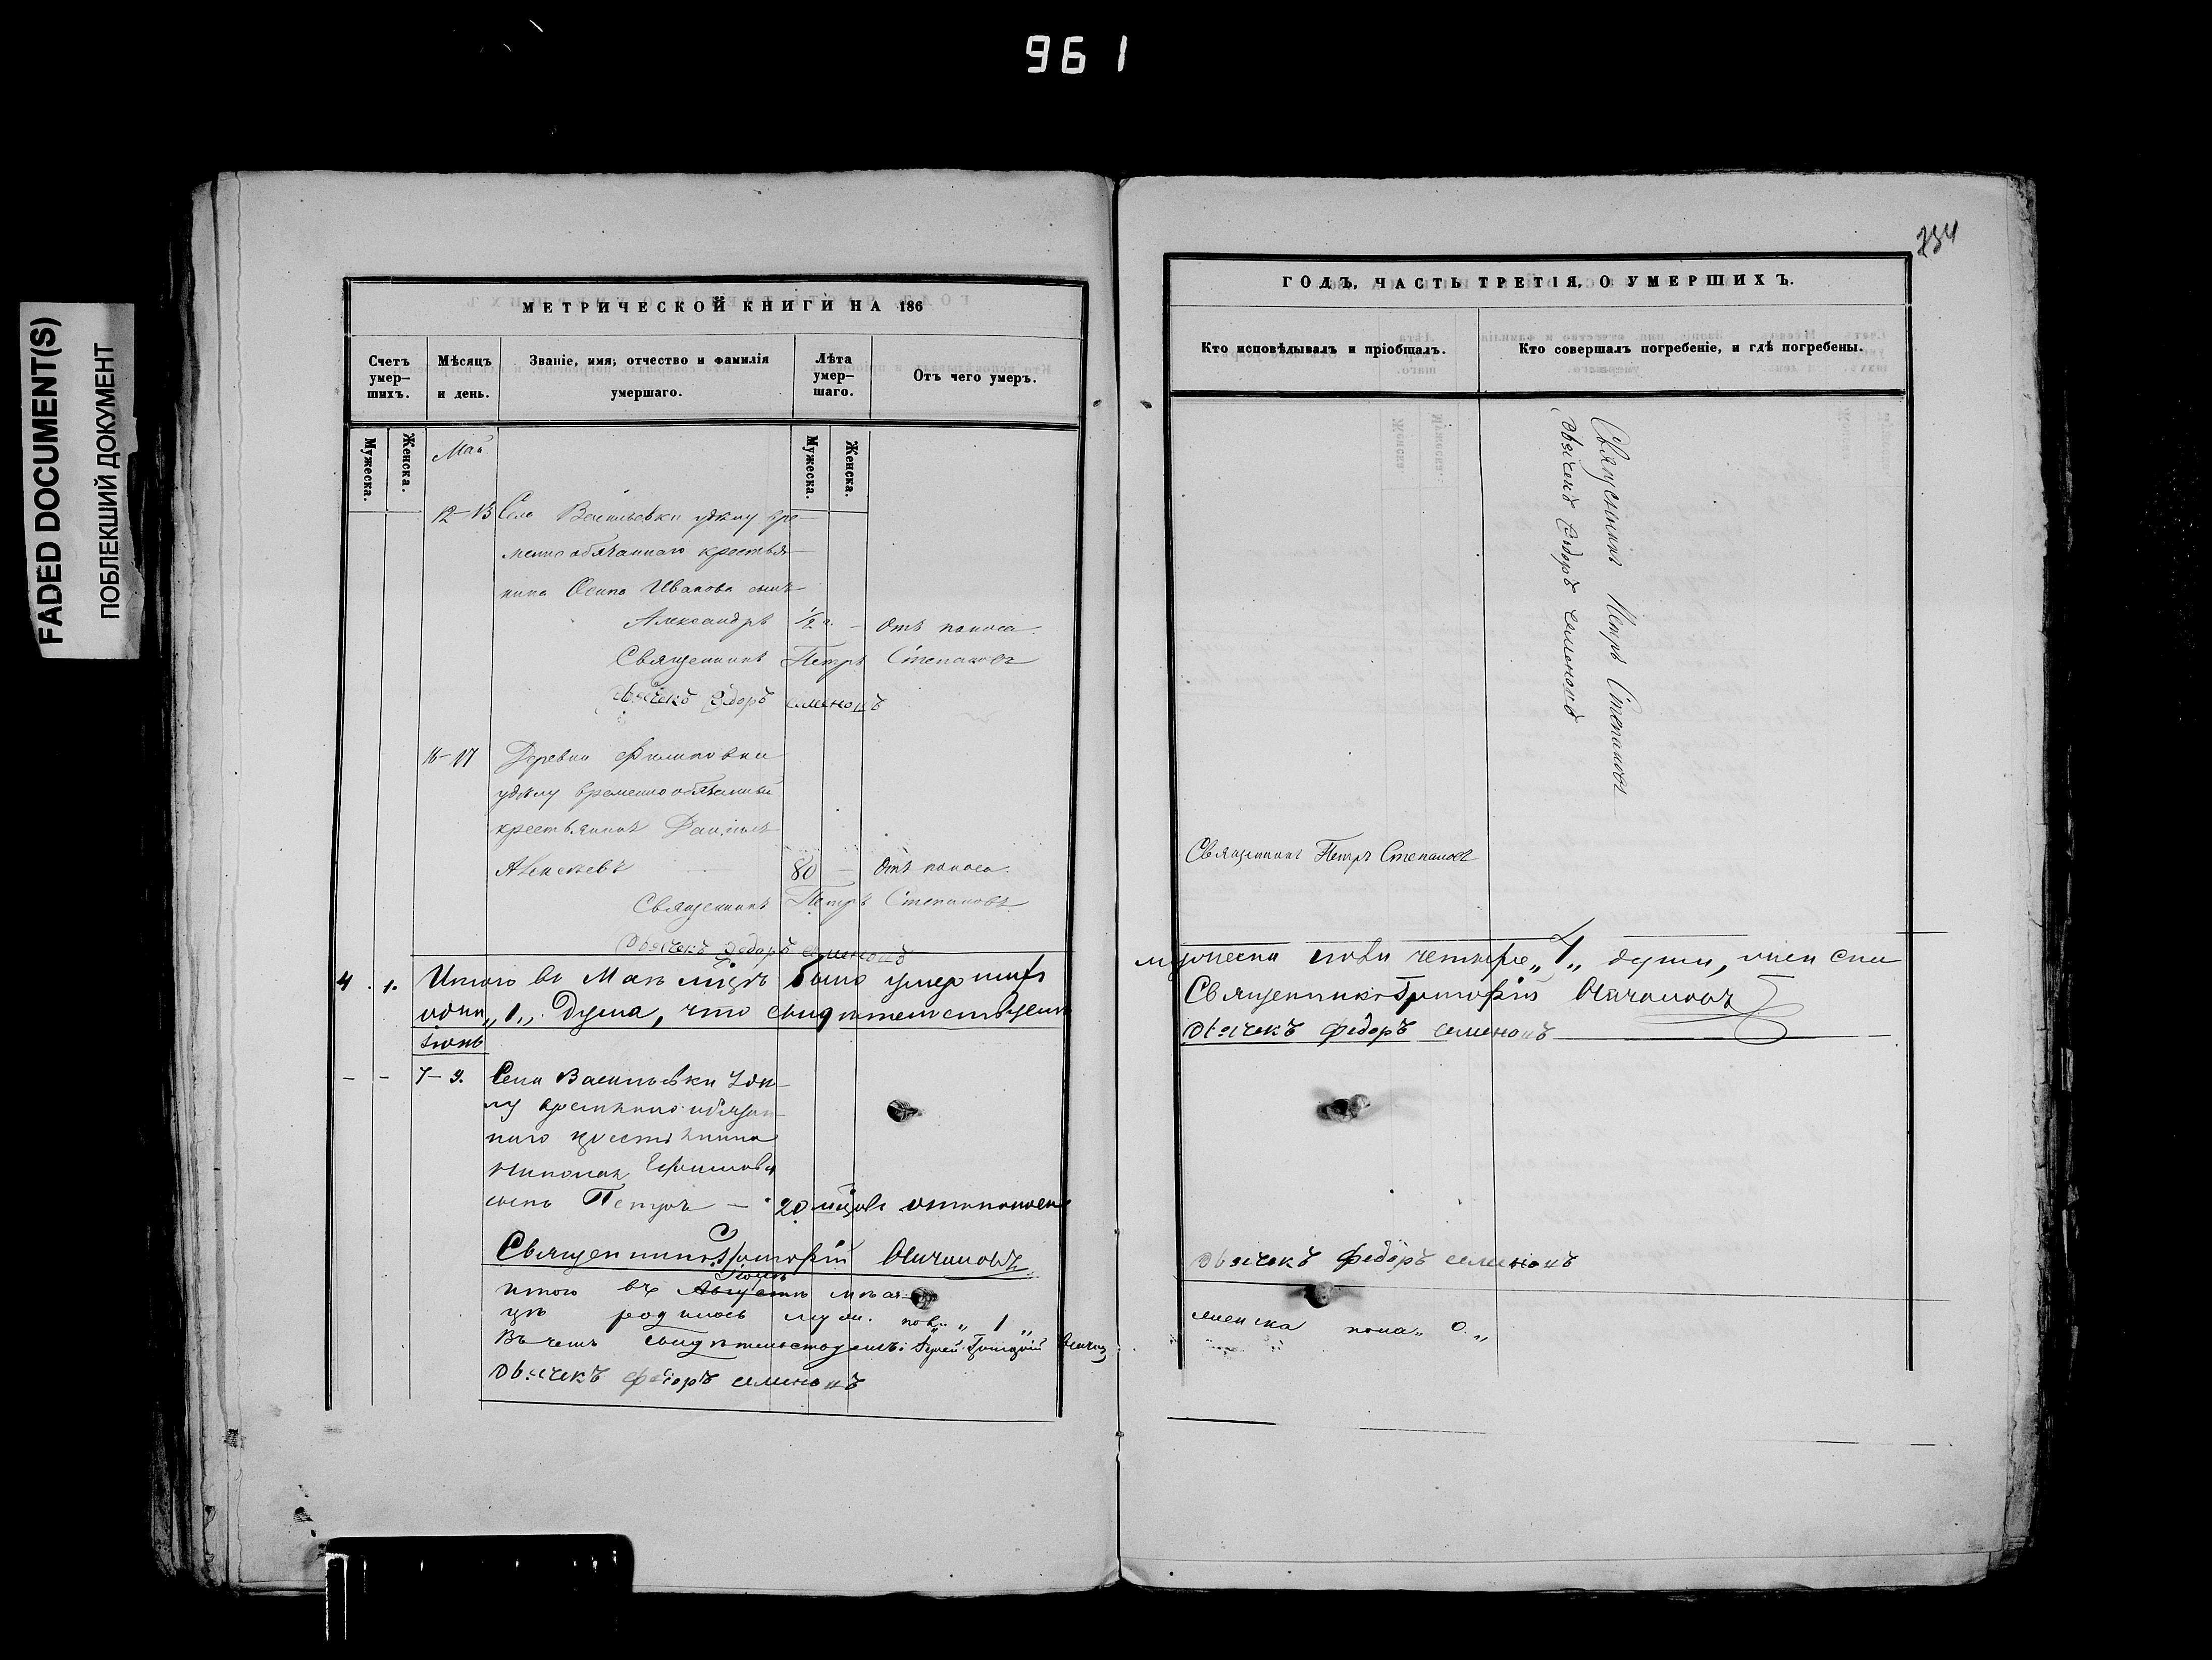 961
FADED DOCUMENT(S)
ПОБЛЕКШИЙ ДОКУМЕНТ
МЕТРИЧЕСКОЙ КНИГИ НА 186
Счетъ умер-шихъ.
Мѣсяцъ и день.
Званіе, имя, отчество и фамилія умершаго.
Лѣта умер-шаго.
Отъ чего умеръ.
Мужеска.
Женска.
Мужеска.
Женска.
Май
12-13 Села Васильевки удѣлу вре-
менно обязаннаго крестья-
нина Осипа Иванова сынъ
Александръ 1/2 г. - Отъ поноса.
Священникъ Петръ Степановъ
Дьячекъ Ѳедоръ Семеновъ
16-17 Деревни Филиповки
удѣлу временно обязанный
крестьянинъ Данiилъ
Алексѣевъ 80 - Отъ поноса.
Священникъ Петръ Степановъ
Дьячекъ Ѳедоръ Семеновъ
4. 1. Итого въ Маѣ мцѣ было умершихъ
одна „1„ душа, что свидѣтельствуемъ
Іюнь
- - 7-9. Села Васильевки Удѣ-
лу временно обязан-
наго крестьянина
Николая
сынъ Петръ - 20 отъ поноса
Священникъ Григорій
Іюнѣ
итого въ Августѣ мѣся-
цѣ родилось муж. пол. „1„
Въ чемъ свидѣтельствуемъ: Іерей Григорій
Дьячекъ Федоръ Семеновъ
734
ГОДЪ, ЧАСТЬ ТРЕТІЯ, О УМЕРШИХЪ.
Кто исповѣдывалъ и пріобщалъ.
Кто совершалъ погребеніе, и гдѣ погребены.
Священникъ Петръ Степановъ
Дьячекъ Ѳедоръ Семеновъ
Священникъ Петръ Степановъ
мужеска пола четыре „4„ души,
Священникъ Григорій
Дьячекъ Федоръ Семеновъ
Дьячекъ Федоръ Семеновъ
женска пола „0„